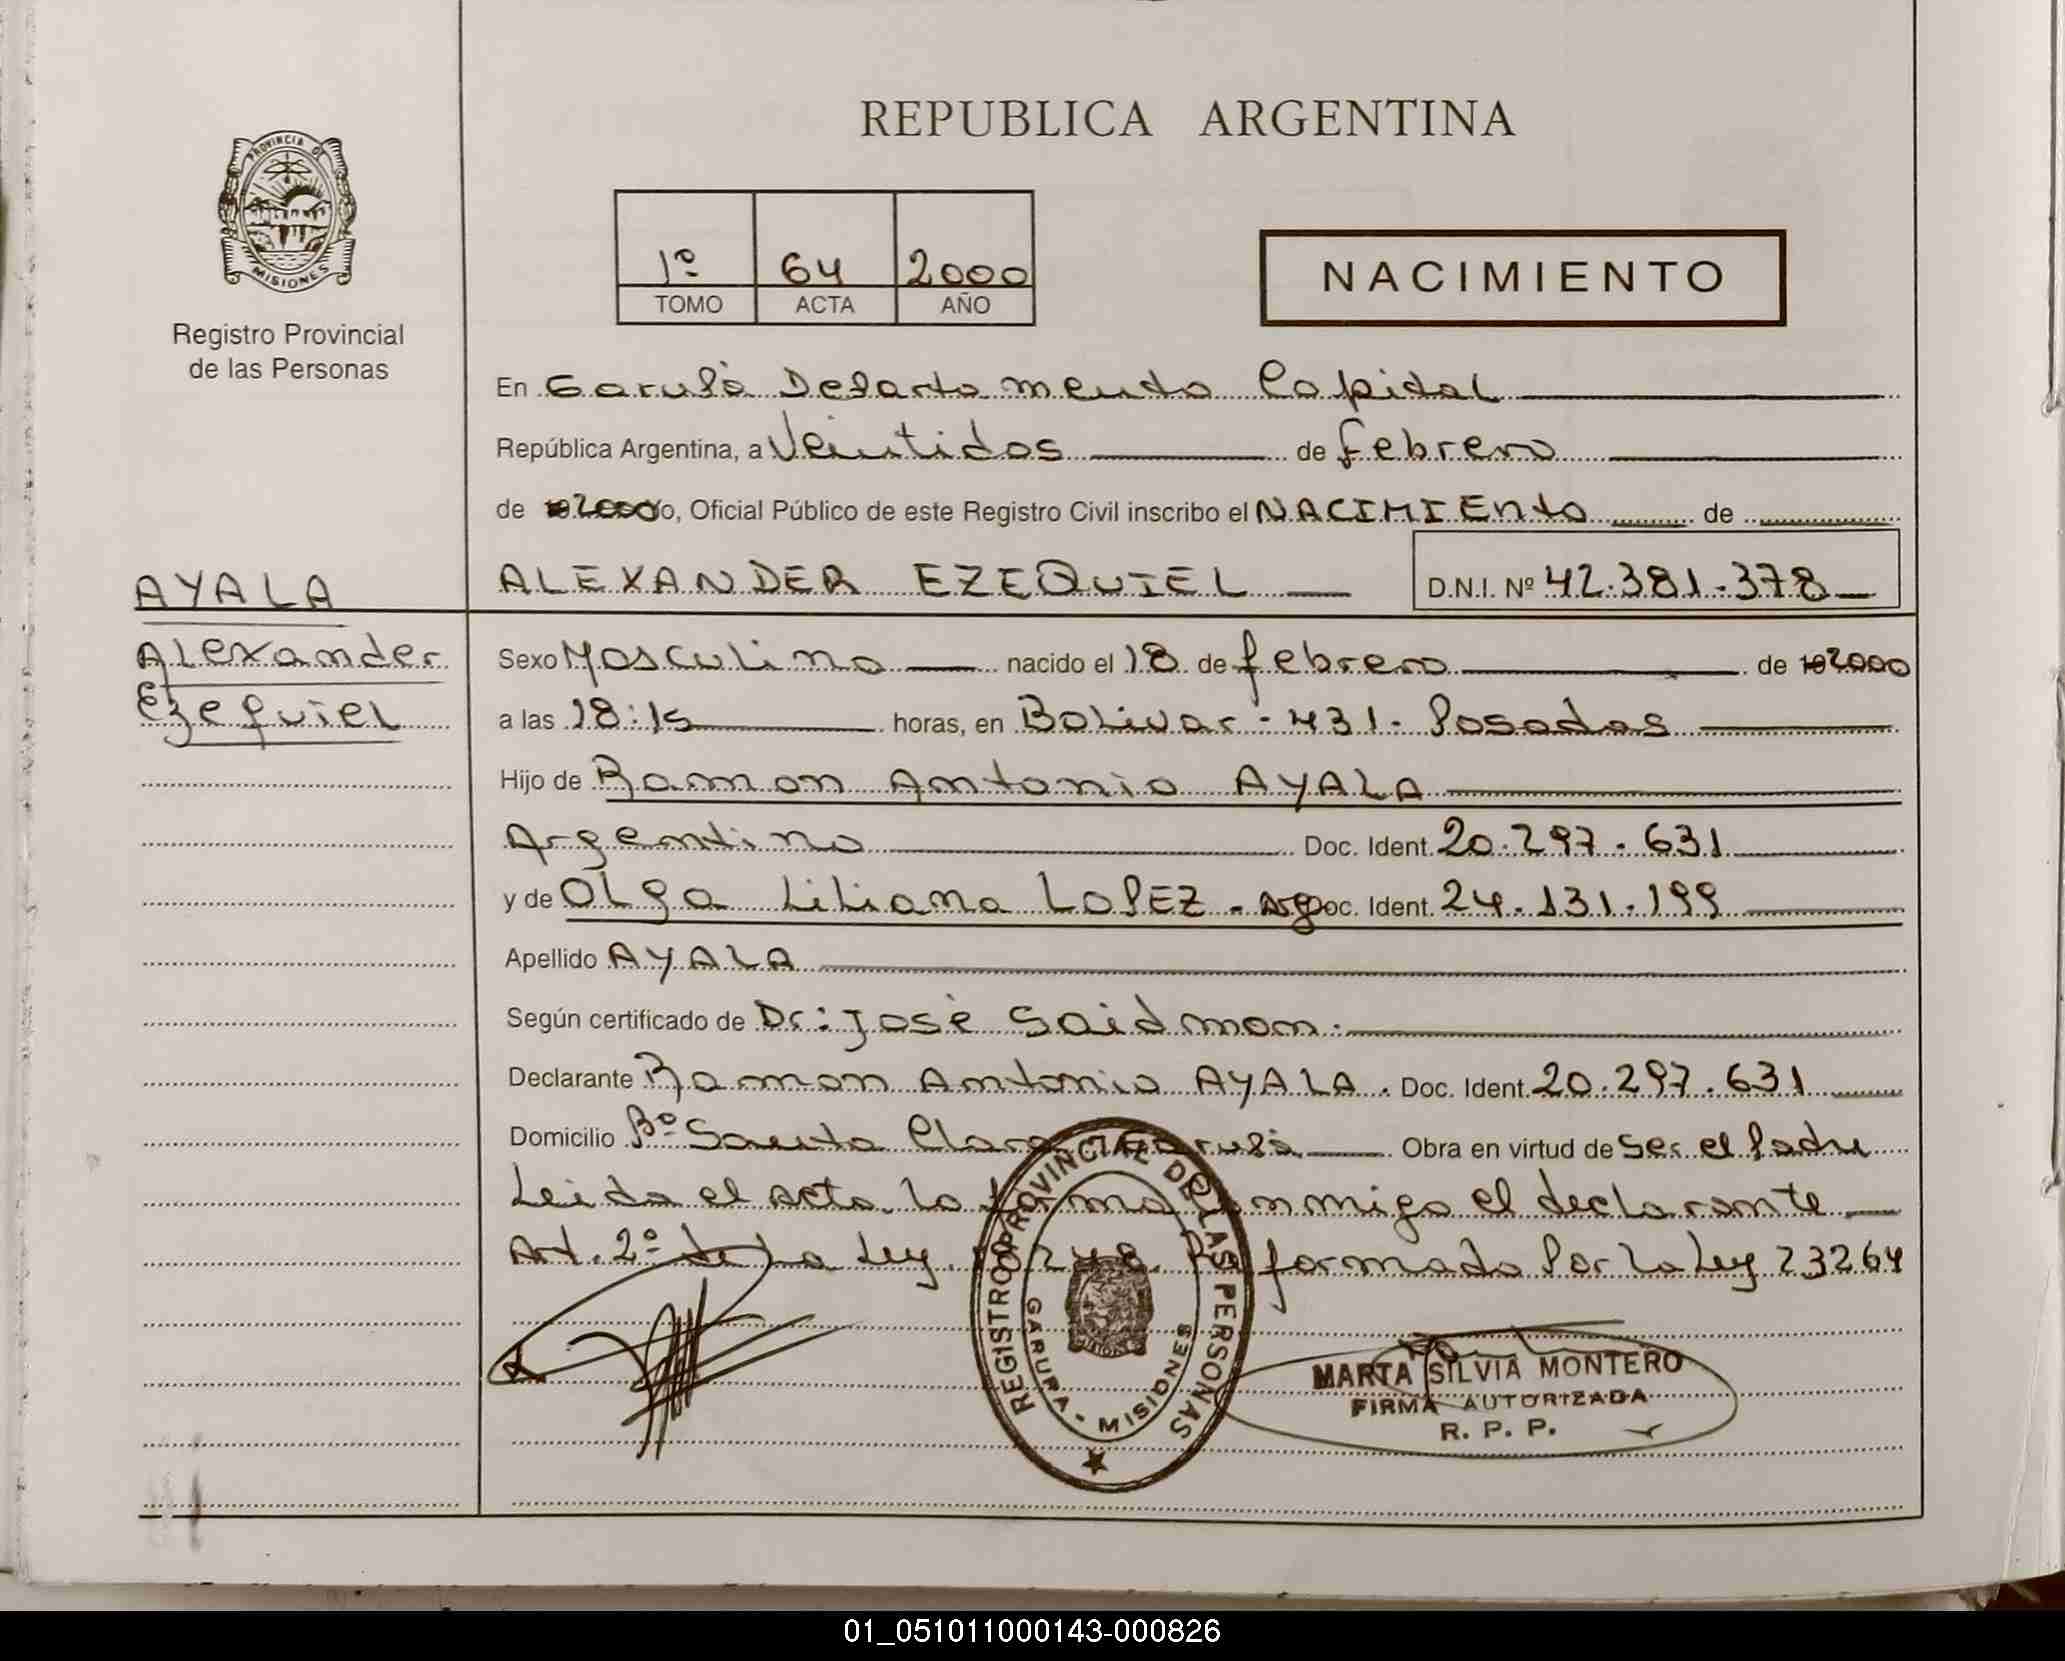 REPUBLICA ARGENTINA
PROVINCIA DE
MISIONES
Registro Provincial
de las Personas
1º 64 2000
TOMO ACTA AÑO
NACIMIENTO
En Garupá Departamento Capital
República Argentina, a Veintidos de febrero
de 2000 yo, Oficial Público de este Registro Civil inscribo el NACIMIENTO de
ALEXANDER EZEQUIEL D.N.I. Nº 42.381.378
AYALA
Alexander
Ezequiel
Sexo Masculino nacido el 18 de febrero de 192000
a las 18:15 horas, en Bolivar - 431 - Posadas
Hijo de Ramon Antonio AYALA
Argentino Doc. Ident. 20.297.631
y de Olga Liliana LOPEZ - Arg Doc. Ident. 24.131.199
Apellido AYALA
Según certificado de Dr: José Saidman.
Declarante Ramon Antonio AYALA. Doc. Ident. 20.297.631
Domicilio Bº Santa Clara Garupá Obra en virtud de ser el Padre
Leida el acta la firma conmigo el declarante
Art. 2º de La Ley 248 Reformada Por La Ley 23264
REGISTRO PROVINCIAL DE LAS PERSONAS
GARUPA - MISIONES
MARTA SILVIA MONTERO
FIRMA AUTORIZADA
R. P. P.
01_051011000143-000826